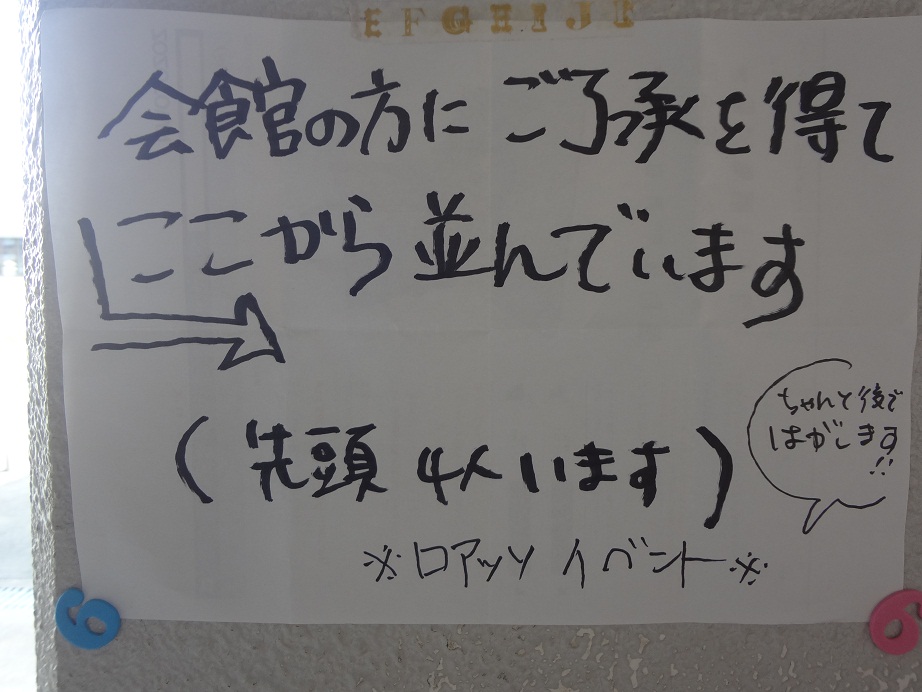 EFGHIJI
会館の方にご了承を得て
ここから並んでいます
(先頭 4人います)
ちゃんと後で
はがします
!!
※ロアッソ イベント※
6
6